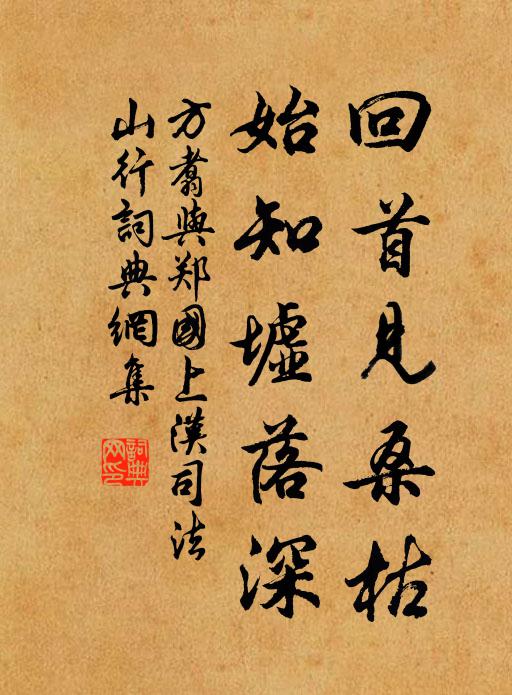 回首見桑枯
始知墟落深
方翥與郑國上漢司法
山行詞典網集
詞典
网印